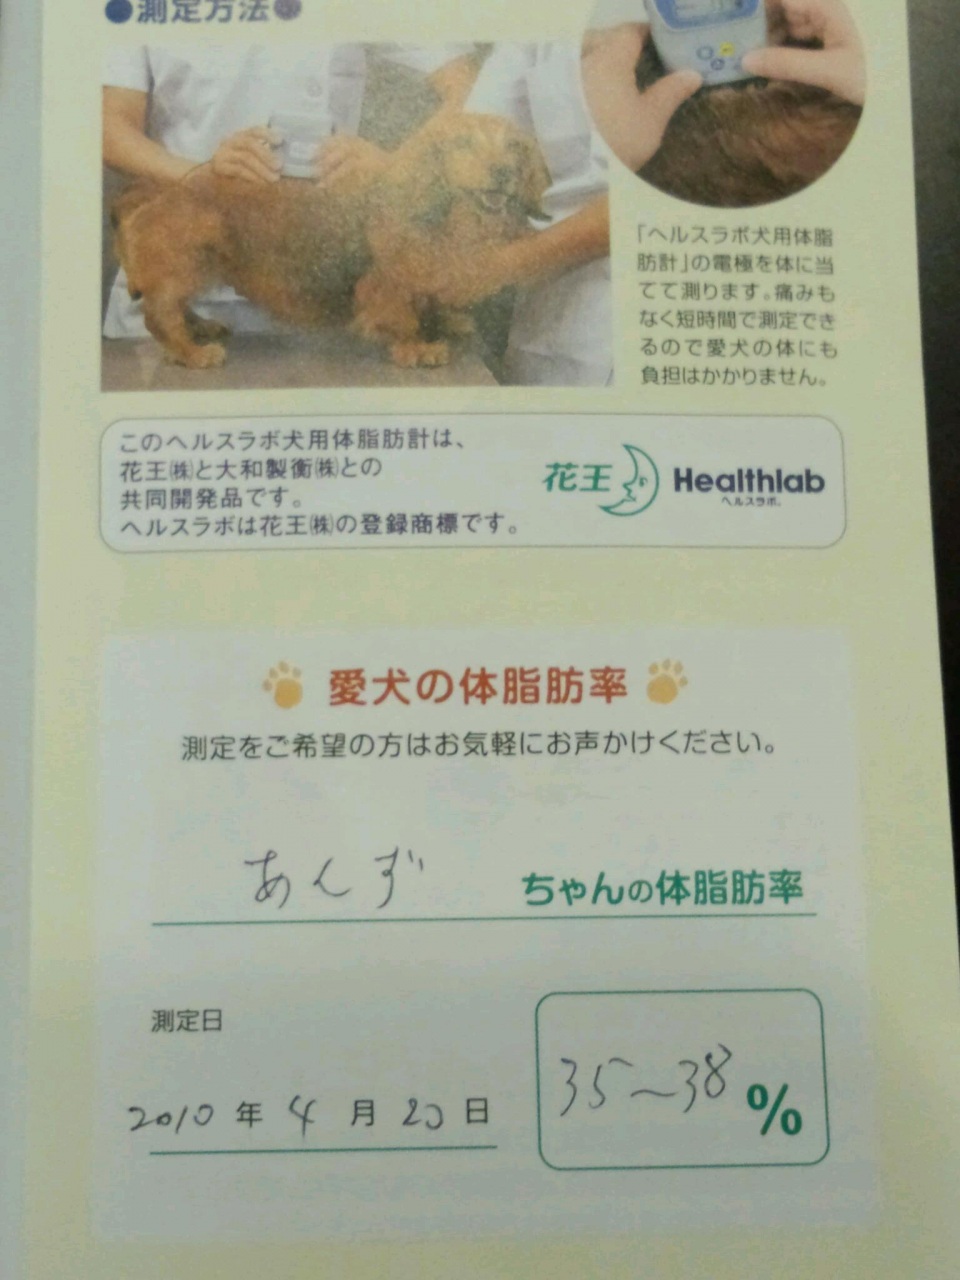 ●測定方法●
「ヘルスラボ犬用体脂
肪計」の電極を体に当
てて測ります。痛みも
なく短時間で測定でき
るので愛犬の体にも
負担はかかりません。
このヘルスラボ犬用体脂肪計は、
花王㈱と大和製衡㈱との
共同開発品です。
ヘルスラボは花王㈱の登録商標です。
花王 Healthlab
ヘルスラボ®
愛犬の体脂肪率
測定をご希望の方はお気軽にお声かけください。
あんず ちゃんの体脂肪率
測定日
2010 年 4 月 20 日
35～38 %